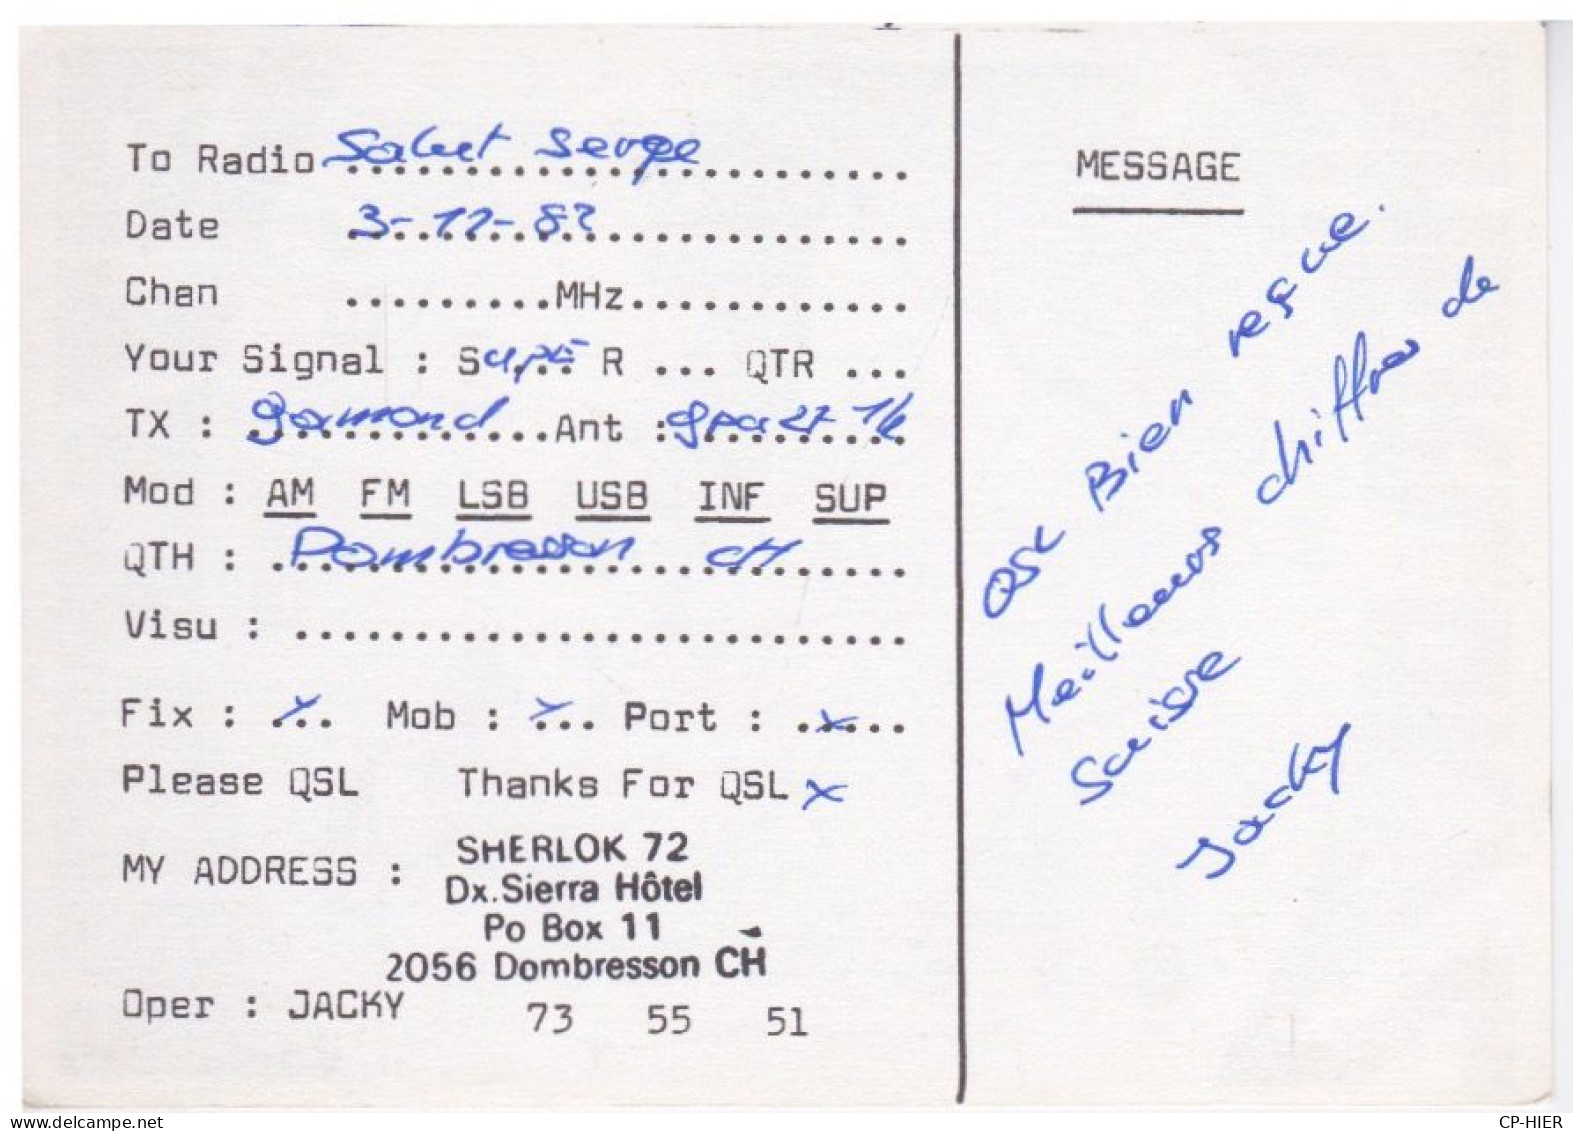 To Radio Salut Serge
Date 3-11-83
Chan .........MHz............
Your Signal : Supé R ... QTR ...
TX : gormond Ant : gpa 27 1/4
Mod : AM FM LSB USB INF SUP
QTH : Dombresson CH
Visu : ..........................
Fix : x... Mob : x... Port : ..x...
Please QSL Thanks For QSL x
MY ADDRESS : SHERLOK 72
Dx.Sierra Hôtel
Po Box 11
2056 Dombresson CH
Oper : JACKY 73 55 51
MESSAGE
QSL Bien reçue.
Meilleurs chiffres de
Suisse
Jacky
delcampe.net
CP-HIER